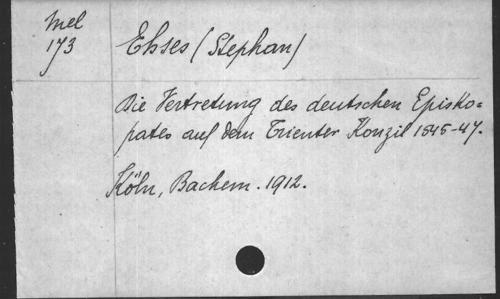 Mel
173
Ehses (Stephan)
Die Vertretung des deutschen Episko-
pates auf dem Trienter Konzil 1545-47.
Köln, Bachem. 1912.